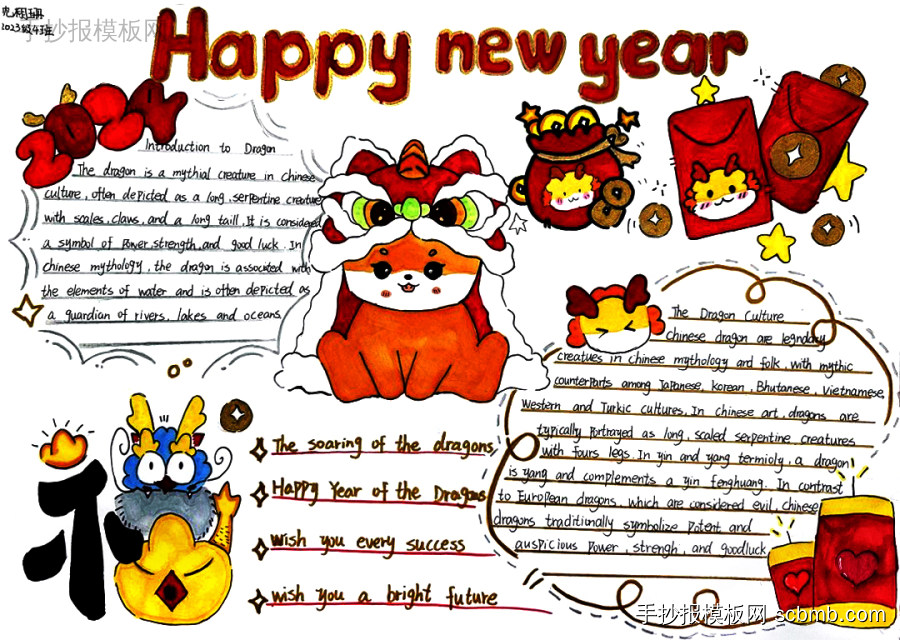 2023级4班
手抄报模板网
Happy new year
2024
Introduction to Dragon
The dragon is a mythial creature in chinese
culture, often depicted as a long, serpentine creature
with scales, claws, and a long taill. It is considered
a symbol of power, strength, and good luck. In
chinese mythology, the dragon is associated with
the elements of water and is often depicted as
a guardian of rivers, lakes and oceans.
The Dragon Culture
chinese dragon are legndary
creatues in chinese mythology and folk, with mythic
counterparts among Japanese, korean, Bhutanese, vietnamese,
western and Turkic cultures. In chinese art, dragons are
typically portrayed as long, scaled serpentine creatures
with fours legs. In yin and yang termioly, a dragon
is yang and complements a yin fenghuang. In contrast
to European dragons, which are considered evil, chinese
dragons traditionally symbolize potent and
auspicious power, strengh, and goodluck
The soaring of the dragons
Happy Year of the Dragons
wish you every success
wish you a bright future
手抄报模板网 scbmb.com